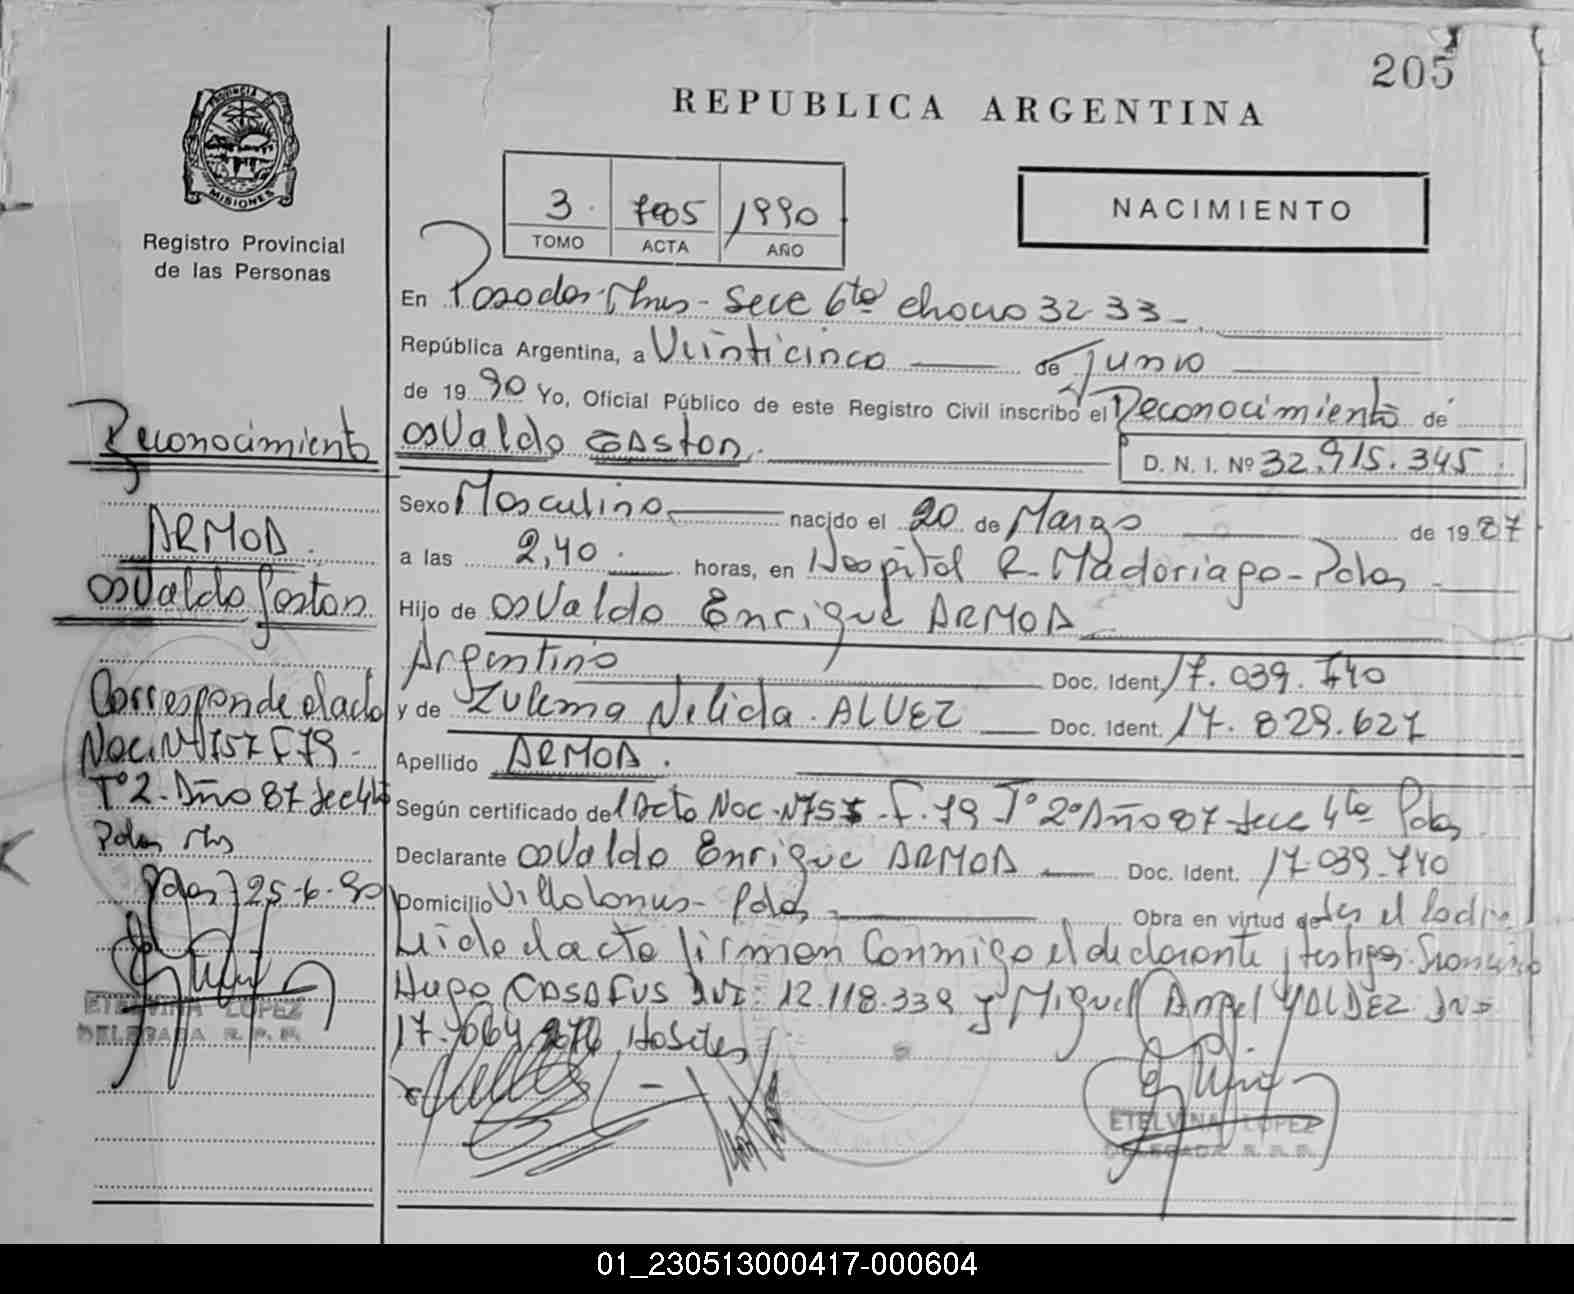 205
REPUBLICA ARGENTINA
PROVINCIA DE
MISIONES
Registro Provincial
de las Personas
3
1990
TOMO ACTA AÑO
NACIMIENTO
En Posadas Mnes - Secc 6ta chacra 32-33-
República Argentina, a Veinticinco de Junio
de 1990 Yo, Oficial Público de este Registro Civil inscribo el Reconocimiento de
Osvaldo Gaston.
D. N. I. Nº 32.915.345.
Sexo Masculino nacido el 20 de Marzo de 1987
a las 2,40. horas, en Hospital R. Madariaga - Pdas
Hijo de Osvaldo Enrique ARMOA
Argentino Doc. Ident. 17.039.740
y de Zulema Nelida ALVEZ Doc. Ident. 17.829.627
Apellido ARMOA.
Según certificado del Acta Nac. Nº 757 F. 79 Tº 2º Año 87 Secc 4ta Pdas
Declarante Osvaldo Enrique ARMOA Doc. Ident. 17.039.740
Domicilio Villalonus - Pdas Obra en virtud de ser el Padre
Leido el acta firman conmigo el declarante y testigos
Hugo CASAFUS DNI. 12.118.339 y Miguel Angel VALDEZ DNI
17.
ETELVINA LOPEZ
DELEGADA R.P.P.
Reconocimiento
ARMOA.
Osvaldo Gaston
Corresponde al acta
Nac. Nº 757 F 79 -
Tº 2 - Año 87 Secc 4ta
Pdas Mns
Pdas, 25-6-90
ETELVINA LOPEZ
DELEGADA R.P.P.
01_230513000417-000604